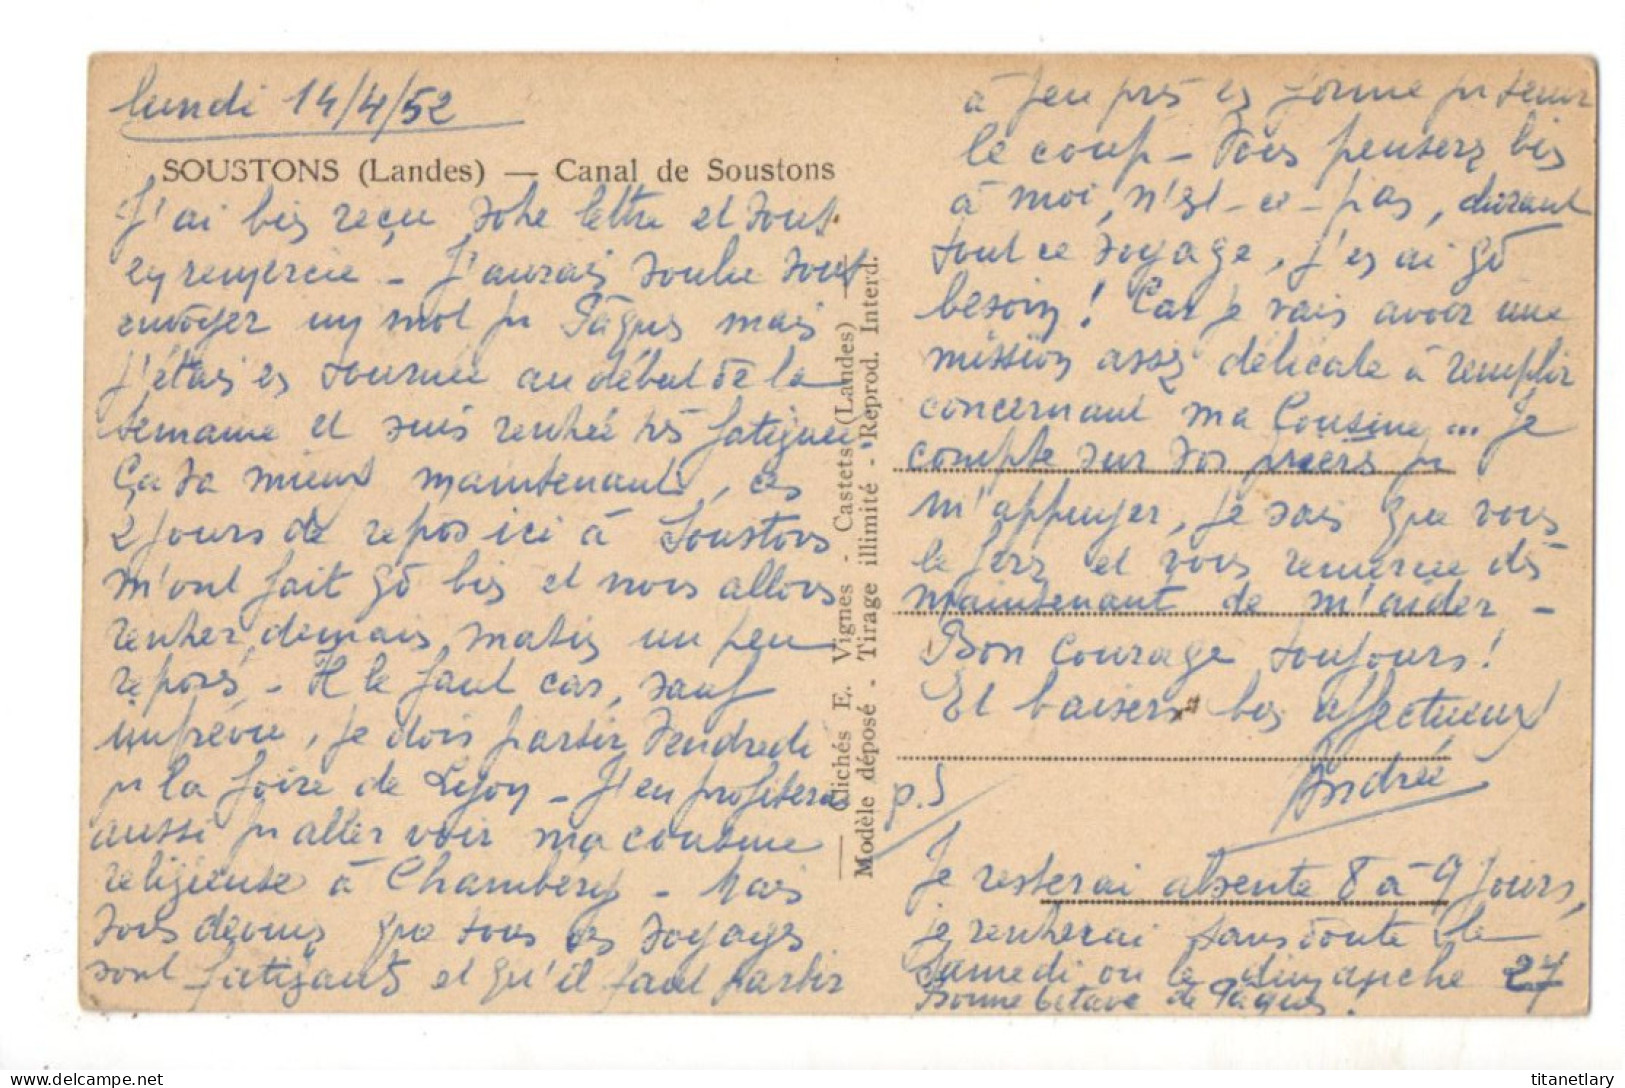 lundi 14/4/52
SOUSTONS (Landes) — Canal de Soustons
J'ai bien reçu votre lettre et vous
en remercie - J'aurais voulu vous
envoyer un mot pr Pâques mais
j'étais en tournée au début de la
semaine et suis rentrée très fatiguée.
Ça va mieux maintenant, ces
2 jours de repos ici à Soustons
m'ont fait gd bien et nous allons
rentrer, demain matin un peu
reposés - Il le faut car, sauf
imprévu, je dois partir Vendredi
pr la foire de Lyon - J'en profiterai
aussi pr aller voir ma cousine
religieuse à Chambéry - Mais
vous devinez que tous ces voyages
sont fatigants et qu'il faut partir
— Clichés E. Vignes - Castets (Landes) —
Modèle déposé - Tirage illimité - Reprod. Interd.
à peu près en forme pr tenir
le coup - Vous penserez bien
à moi, n'est-ce-pas, durant
tout ce voyage, j'en ai gd
besoin ! Car je vais avoir une
mission assez délicate à remplir
concernant ma Cousine... Je
compte sur vos prières pr
m'appuyer, je sais que vous
le ferez et vous remercie dès
maintenant de m'aider -
Bon courage toujours !
Et baisers bien affectueux
Andrée
p.S
Je resterai absente 8 à 9 jours,
je rentrerai sans doute le
Samedi ou le dimanche 27
Bonne Octave de Pâques !
titanetlary